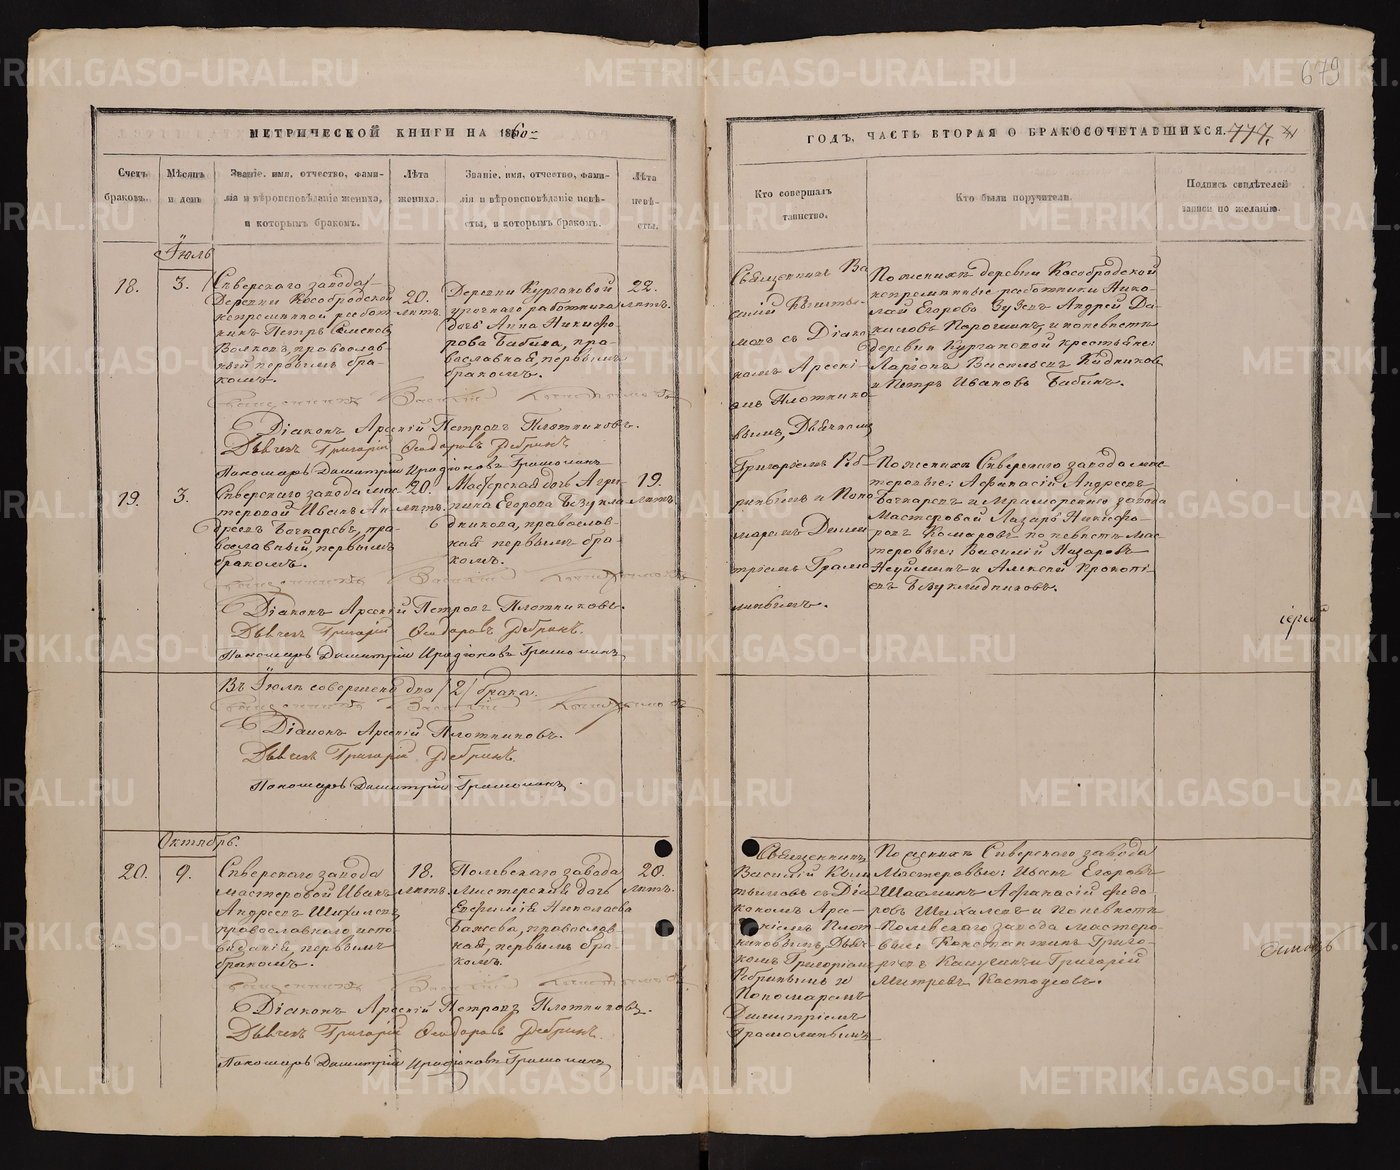 679
МЕТРИЧЕСКОЙ КНИГИ НА 1860
ГОДЪ, ЧАСТЬ ВТОРАЯ О БРАКОСОЧЕТАВШИХСЯ. 777.
Счетъ браковъ.
Мѣсяцъ и день
Званіе, имя, отчество, фами-
лія и вѣроисповѣданіе жениха,
и которымъ бракомъ.
Лѣта жениха.
Званіе, имя, отчество, фами-
лія и вѣроисповѣданіе невѣ-
сты, и которымъ бракомъ.
Лѣта невѣ-
сты.
Кто совершалъ
таинство.
Кто были поручители
Подпись свидѣтелей
записи по желанію.
Іюль
18.
3.
Сѣверскаго завода
Деревни Кособродской
непремѣнной работ
никъ Петръ Семеновъ
Волковъ, православ
ный первымъ бра
комъ.
20.
лѣтъ.
Деревни Кургановой
урочнаго работника
дочь Анна Никифо-
рова Бабина, пра-
вославная, первымъ
бракомъ.
22.
лѣтъ.
Священникъ Ва
силій
съ Діако
номъ Арсені-
емъ Плотнико-
вымъ, Дьячкомъ
Григоріемъ Реб-
ринымъ и Поно
маремъ Дими
тріемъ Грамо
линымъ.
По женихѣ деревни Кособродской
непремѣнные работники Нико-
лай Егоровъ и Андрей Да-
ниловъ и по невѣстѣ
деревни Кургановой крестьяне:
Ларіонъ Васильевъ
и Петръ Ивановъ Бабинъ.
Священникъ Василій
Діаконъ Арсеній Петровъ Плотниковъ.
Дьячекъ Григорій Ѳеодоровъ Ребринъ
Пономарь Димитрій Иродіоновъ Грамолинъ
19.
3.
Сѣверскаго завода мас-
теровой Иванъ Ан-
дреевъ Бочкаревъ, пра-
вославный, первымъ
бракомъ.
20.
лѣтъ.
Мастерская дочь Агри-
пина Егорова Безукла-
дникова, православ-
ная первымъ бра-
комъ.
19.
лѣтъ.
По женихѣ Сѣверскаго завода мас-
теровые: Афанасій Андреевъ
Бочкаревъ и Мраморскаго завода
Мастеровой Лазарь Никифо-
ровъ Комаровъ по невѣстѣ мас-
теровые: Василій Назаровъ
и Алексѣй Прокопі-
евъ Безукладниковъ.
Священникъ Василій
Діаконъ Арсеній Петровъ Плотниковъ.
Дьячекъ Григорій Ѳеодоровъ Ребринъ.
Пономарь Димитрій Иродіоновъ Грамолинъ
іерей
Въ Іюлѣ совершено два /2/ брака.
Священникъ Василій
Діаконъ Арсеній Плотниковъ.
Дьячекъ Григорій Ребринъ.
Пономарь Димитрій Грамолинъ
Октябрь.
20.
9.
Сѣверскаго завода
мастеровой Иванъ
Андреевъ Шихалевъ,
православнаго испо
вѣданія, первымъ
бракомъ.
18.
лѣтъ.
Полевскаго завода
Мастерская дочь
Евфимія Николаева
Бажева, православ
ная, первымъ бра-
комъ.
20.
лѣтъ.
Священникъ
Василій
съ Діа
кономъ Арсе-
ніемъ Плот-
никовымъ, Дьяч-
комъ Григоріемъ
Ребринымъ и
Пономаремъ
Димитріемъ
Грамолинымъ
По женихѣ Сѣверскаго завода
Мастеровые: Иванъ Егоровъ
Афанасій Федо-
ровъ Шихалевъ и по невѣстѣ
Полевскаго завода мастеро-
вые: Константинъ Григо-
рьевъ и Григорій
Митревъ Костоусовъ.
Священникъ Василій
Діаконъ Арсеній Петровъ Плотниковъ.
Дьячекъ Григорій Ѳеодоровъ Ребринъ
Пономарь Димитрій Иродіоновъ Грамолинъ
METRIKI.GASO-URAL.RU